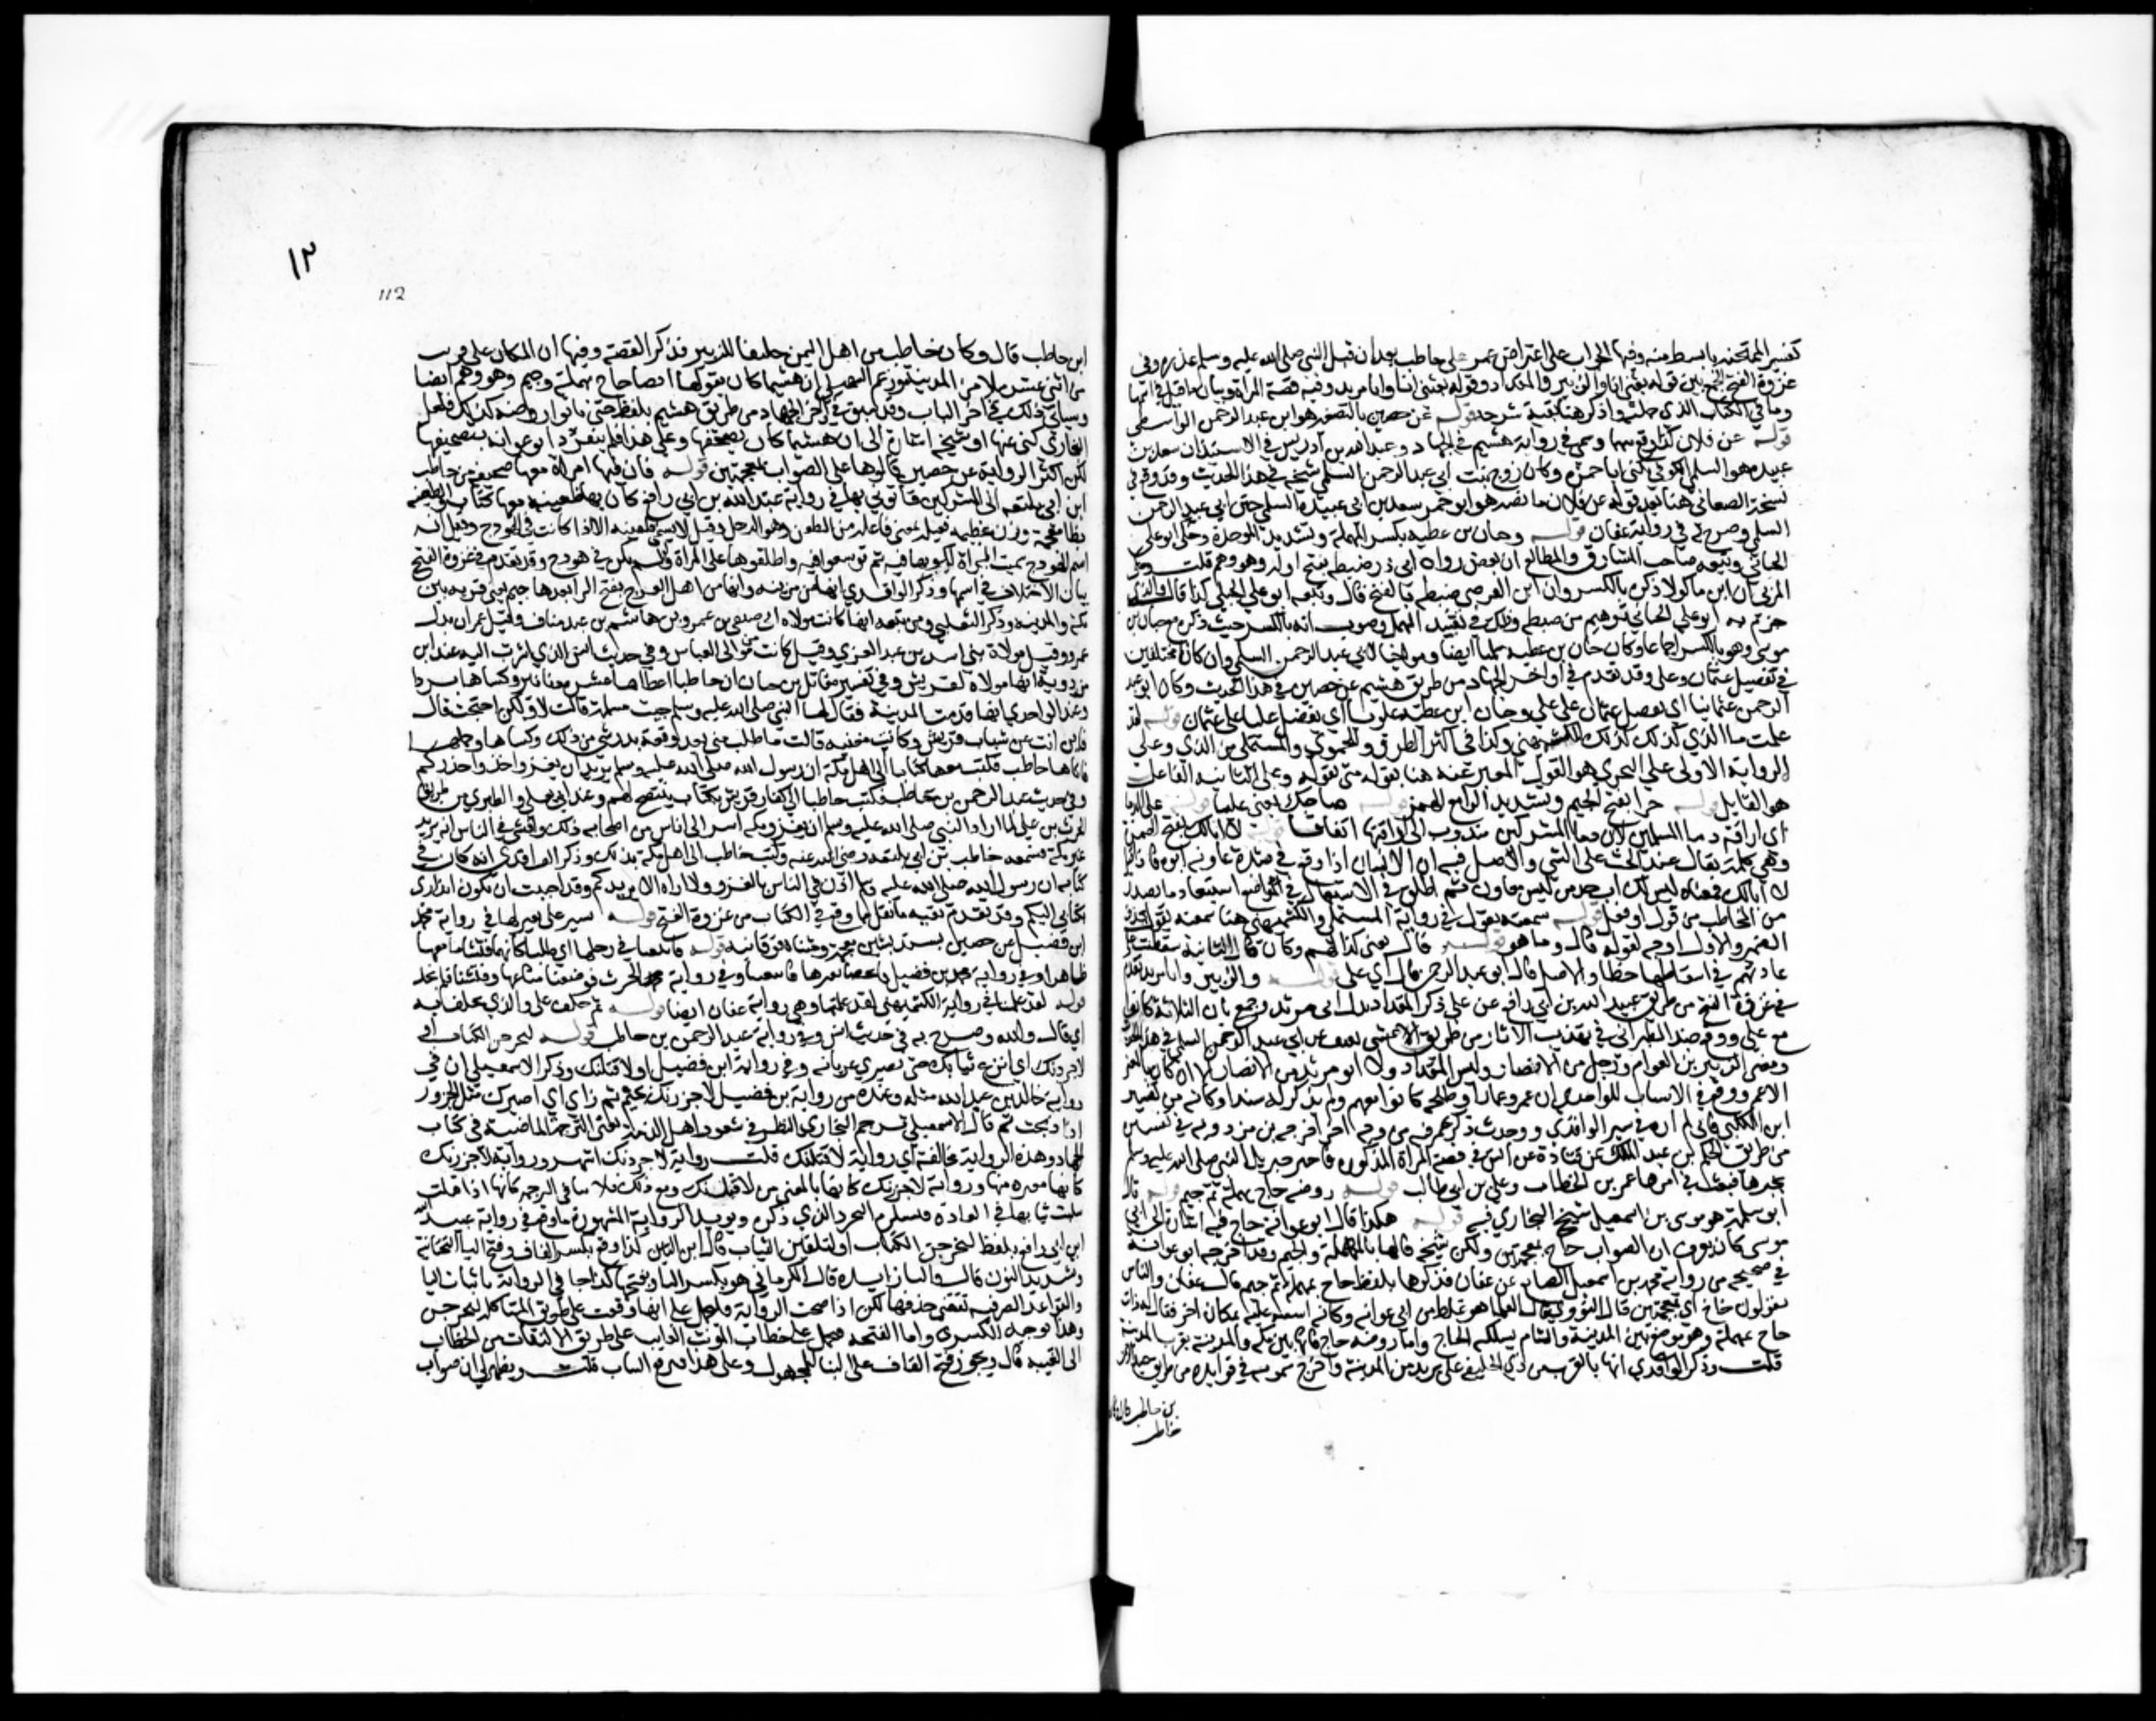 تفسير الممتحنة بابسط منه وفيها الجواب على اعتراض عمر على حاطب بعد ان قبل النبي صلى الله عليه وسلم عذره وفي
غزوة الفتح الجمع بين قوله بعثني انا والزبير والمقداد وقوله بعثني انا وابا مرثد وفيه قصة المراة وبيان ما قيل في اسمها
وما في الكتاب الذي حملته واذكر هنا بقية شرحه قوله عن حصين بالتصغير هو ابن عبد الرحمن الواسطي
قوله عن فلان كذا وقع مبهما وسمي في رواية هشيم في الجهاد وعبد الله بن ادريس في الاستئذان سعد بن
عبيدة هو السلمي الكوفي يكنى ابا حمزة وكان زوج بنت ابي عبد الرحمن السلمي شيخه في هذا الحديث وقد وقع في
نسخة الصغاني هنا بعد قوله عن فلان ما نصه هو ابو حمزة سعد بن عبيدة السلمي ختن ابي عبد الرحمن
السلمي وصرح في رواية عفان قوله وحبان بن عطية بكسر المهملة وتشديد الموحدة وحكى ابو علي
الجياني وتبعه صاحب المشارق والمطالع ان بعض رواة ابي ذر ضبطه بفتح اوله وهو وهم قلت وحكى
المزي ان ابن ماكولا ذكره بالكسر وان ابن الفرضي ضبطه بالفتح قال وتبعه ابو علي الجياني كذا قال والذي
جزم به ابو علي الجياني توهيم من ضبطه وذلك في تقييد المهمل وصوب انه بالكسر حيث ذكره مع حبان بن
موسى وهو بالكسر اجماعا وكان حبان بن عطية سلميا ايضا ومواخيا لابي عبد الرحمن السلمي وان كانا مختلفين
في تفضيل عثمان وعلي وقد تقدم في اواخر الجهاد من طريق هشيم عن حصين في هذا الحديث وكان ابو عبد
الرحمن عثمانيا اي يفضل عثمان على علي وحبان ابن عطية علويا اي يفضل عليا على عثمان قوله لقد
علمت ما الذي كذا للكشميهني وكذا في اكثر الطرق وللحموي والمستملي من الذي وعلى
الرواية الاولى على التجري هو القول المعبر عنه هنا بقوله شي بقوله وعلى الثانية الفاعل
هو القايل قوله جرا بفتح الجيم وتشديد الراء مع الهمز قوله صاحبك يعني عليا قوله على الدماء
اي اراقة دماء المسلمين لان دماء المشركين مندوب الى اراقتها اتفاقا قوله لا ابالك بفتح الهمزة
وهي كلمة تقال عند الحث على الشي والاصل فيه ان الانسان اذا وقع في شدة عاونه ابوه فاذا قيل
لا ابالك فمعناه ليس لك اب جد من ليس معاون ثم اطلق في الاستعمال في المواضع استبعاد ما يصدر
من المخاطب من قول او فعل قوله سمعته يقوله في رواية المستملي والكشميهني هنا سمعته يقول بحذف
الضمير والاول اوجه لقوله قال وما هو قوله قال يعني كذا لهم وكان قال الثانية سقطت على
عادتهم في اسقاطها خطا والاصل قال ابو عبد الرحمن قال اي علي قوله والزبير وابا مرثد تقدم
في غزوة الفتح من طريق عبيد الله بن ابي رافع عن علي ذكر المقداد بدل ابي مرثد وجمع بان الثلاثة كانوا
مع علي ووقع عند الطبراني في تهذيب الاثار من طريق الاعمش عن ابي عبد الرحمن السلمي في هذا الحديث
ومعي الزبير بن العوام ورجل من الانصار وليس المقداد ولا ابو مرثد من الانصار الا ان كان بالمعنى
الاعم ووقع في الاسباب للواحدي ان عمر وعمارا وطلحة كانوا معهم ولم يذكر له سندا وكانه من تفسير
ابن الكلبي فاني لم اره في سير الواقدي ووجدت ذكر عمر فيه من وجه اخر اخرجه بن مردويه في تفسيره
من طريق الحكم بن عبد الملك عن قتادة عن انس في قصة المراة المذكورة فاخبر جبريل النبي صلى الله عليه وسلم
بخبرها فبعث في اثرها عمر بن الخطاب وعلي بن ابي طالب قوله روضة حاج بمهملة ثم جيم قوله قال
ابو سلمة هو موسى بن اسمعيل شيخ البخاري فيه قوله هكذا قال ابو عوانة حاج فيه اشارة الى ان
موسى كان يعرف ان الصواب خاخ بمعجمتين ولكن شيخه قالها بالمهملة والجيم وقد اخرجه ابو عوانة
في صحيحه من رواية محمد بن اسمعيل الصايغ عن عفان فذكرها بلفظ حاج بمهملة ثم جيم قال عفان والناس
يقولون خاخ اي بمعجمتين قال النووي قال العلماء هو غلط من ابي عوانة وكانه اشتبه عليه بمكان اخر يقال له ذات
حاج بمهملة وهو موضع بين المدينة والشام يسلكه الحاج واما روضة خاخ فانها بين مكة والمدينة بقرب المدينة
قلت وذكر الواقدي انها بالقرب من ذي الحليفة على بريد من المدينة واخرج سمويه في فوايده من طريق عبد الرحمن
بن حاطب قال وكان
حاطب
١٢
112
ابن حاطب قال وكان حاطب من اهل اليمن حليفا للزبير فذكر القصة وفيها ان المكان على قريب
من اثني عشر ميلا من المدينة وزعم السهيلي ان هشيما كان يقولها ايضا حاج بمهملة وجيم وهو وهم ايضا
وسياتي ذلك في اخر الباب وقد سبق في اخر الجهاد من طريق هشيم بلفظ حتى تاتوا روضة كذا فلعل
البخاري كنى عنها او شيخه اشارة الى ان هشيما كان يصحفها وعلى هذا فلم ينفرد ابو عوانة بتصحيفها
لكن اكثر الرواية عن حصين قالوها على الصواب بمعجمتين قوله فان فيها امراة معها صحيفة من حاطب
ابن ابي بلتعة الى المشركين فاتوني بها في رواية عبيد الله بن ابي رافع فان بها ظعينة معها كتاب والظعينة
بظاء معجمة وزن عظيمة فعيلة بمعنى فاعلة من الظعن وهو الرحيل وقيل لا يسمى ظعينة الا اذا كانت في الهودج وقيل انه
اسم للهودج سميت المراة لركوبها فيه ثم توسعوا فيه واطلقوها على المراة ولو لم تكن في هودج وقد تقدم في غزوة الفتح
بيان الاختلاف في اسمها وذكر الواقدي انها من مزينة وانها من اهل العرج بفتح الراء بعدها جيم يعني قرية بين
مكة والمدينة وذكر الثعلبي ومن تبعه انها كانت مولاة ابي صيفي بن عمرو بن هاشم بن عبد مناف وقيل عمران بدل
عمرو وقيل مولاة بني اسد بن عبد العزى وقيل كانت من موالي العباس وفي حديث انس الذي اشرت اليه عند ابن
مردويه انها مولاة لقريش وفي تفسير مقاتل بن حيان ان حاطبا اعطاها عشرة دنانير وكساها بردا
وعند الواحدي انها قدمت المدينة فقال لها النبي صلى الله عليه وسلم جئت مسلمة قالت لا ولكن احتجت فقال
فاين انت عن شباب قريش وكانت مغنية قالت ما طلب مني بعد وقعة بدر شي من ذلك وكساها وحملها
فاتاها حاطب فكتب معها كتابا الى اهل مكة ان رسول الله صلى الله عليه وسلم يريد ان يغزو فخذوا حذركم
وفي حديث عبد الرحمن بن حاطب فكتب حاطب الى كفار قريش بكتاب ينتصح لهم وعند ابي يعلى والطبري من طريق
الحرث بن علي لما اراد النبي صلى الله عليه وسلم ان يغزو مكة اسر الى ناس من اصحابه ذلك وافشى في الناس انه يريد
غير مكة فسمعه حاطب بن ابي بلتعة رضي الله عنه وكتب حاطب الى اهل مكة بذلك وذكر الواقدي انه كان في
كتابه ان رسول الله صلى الله عليه وسلم اذن في الناس بالغزو ولا اراه الا يريدكم وقد احببت ان يكون انذاري
بكتابي اليكم وقد تقدم بقية ما نقل مما وقع في الكتاب من غزوة الفتح قوله تسير على بعير لها في رواية محمد
ابن فضيل عن حصين تشتد بشين معجمة ومثناة فوقانية قوله فابتغينا في رحلها اي طلبنا كانهما فتشا ما معها
ظاهرا وفي رواية محمد بن فضيل فانخنا بعيرها فابتغينا وفي رواية الحرث فوضعنا متاعها وفتشنا فلم نجد
قوله لقد علمنا في رواية الكشميهني لقد علمتما وهي رواية عفان ايضا قوله ثم حلف علي والذي يحلف به
اي قال والله وصرح به في حديث انس وفي رواية عبد الرحمن بن حاطب قوله لتخرجن الكتاب او
لاجردنك اي انزع ثيابك حتى تصيري عريانة وفي رواية ابن فضيل او لاقتلنك وذكر الاسمعيلي ان في
رواية خالد بن عبد الله مثله وعنده من رواية بن فضيل لاجزرنك بجيم ثم زاي اي اصيرك مثل الجزور
اذا ذبحت ثم قال الاسمعيلي ترجم البخاري النظر في شعور اهل الذمة يعني الترجمة الماضية في كتاب
الجهاد وهذه الرواية تخالفه اي رواية لاقتلنك قلت رواية لاجردنك اشهر ورواية لاجزرنك
كانها مفسرة منها ورواية لاجزرنك كانها بالمعنى من لاقتلنك ومع ذلك فلا تنافي الترجمة لانها اذا قتلت
سلبت ثيابها في العادة فيستلزم التجرد الذي ذكره ويؤيد الرواية المشهورة ما وقع في رواية عبيد الله
ابن ابي رافع بلفظ لتخرجن الكتاب او لتلقين الثياب قال ابن التين كذا وقع بكسر القاف وفتح الياء التحتانية
وتشديد النون قال والياء زايدة قال الكرماني هو بكسر الياء وبفتحها كذا جاء في الرواية باثبات الياء
والقواعد الصرفية تقتضي حذفها لكن اذا صحت الرواية فلتحمل على انها وقعت على طريق المشاكلة لتخرجن
وهذا توجيه الكسرة واما الفتحة فتحمل على خطاب المونث الغايب على طريق الالتفات من الخطاب
الى الغيبة قال ويجوز فتح القاف على البناء للمجهول وعلى هذا فيرفع الثياب قلت ويظهر لي ان صواب